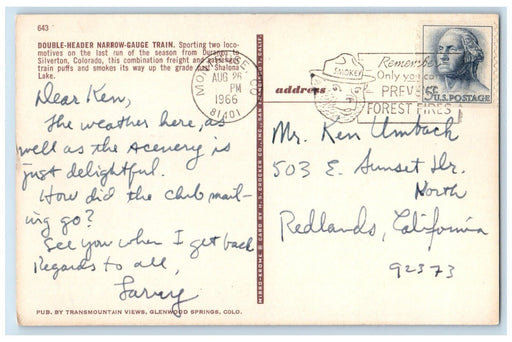 643
DOUBLE-HEADER NARROW-GAUGE TRAIN. Sporting two loco-
motives on the last run of the season from Durango to
Silverton, Colorado, this combination freight and passenger
train puffs and smokes its way up the grade past Shalona
Lake.
MONTROSE, CO
AUG 26
PM
1966
81401
SMOKEY
Remember
Only you can
PREVENT
FOREST FIRES
5¢ U.S. POSTAGE
address
Dear Ken,
The weather here, as
well as the scenery is
just delightful.
How did the club mail-
ing go?
See you when I get back
Regards to all,
Larry
Mr. Ken Umbach
503 E. Sunset Dr.
North
Redlands, California
92373
MIRRO-KROME ® CARD BY H. S. CROCKER CO., INC., SAN FRANCISCO 1, CALIF.
PUB. BY TRANSMOUNTAIN VIEWS, GLENWOOD SPRINGS, COLO.